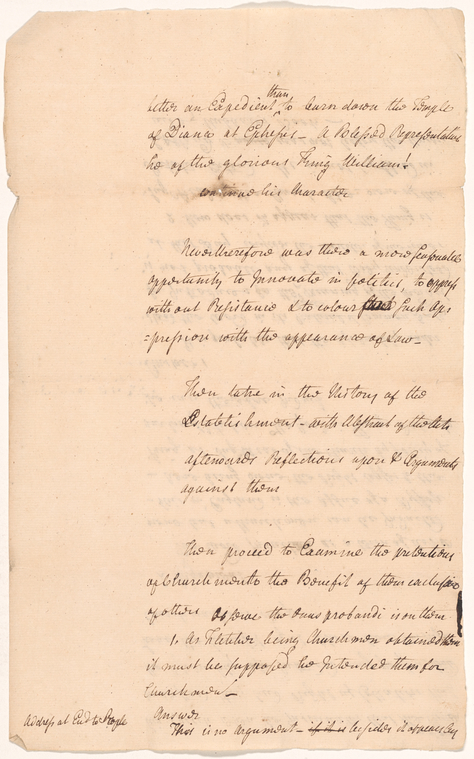 than
better an Expedient to burn down the Temple
of Diana at Ephesus - A Blessed Representative
he of the glorious King William!
continue his Character
Never therefore was there a more seasonable
opportunity to Innovate in politics, to oppress
without Resistance & to colour such Opp
=pression with the appearance of Law -
Then take in the History of the
Establishment - with Abstract of the Acts
afterwards Reflections upon & Arguments
against them
Then proceed to Examine the pretentions
of Churchmen to the Benefit of them exclusive
of others observe the onus probandi is on them
1. As Fletcher being Churchman obtained them
it must be supposed he Intended them for
Churchmen -
Answer
Address at End to People
This is no argument - if it is besides it appears by